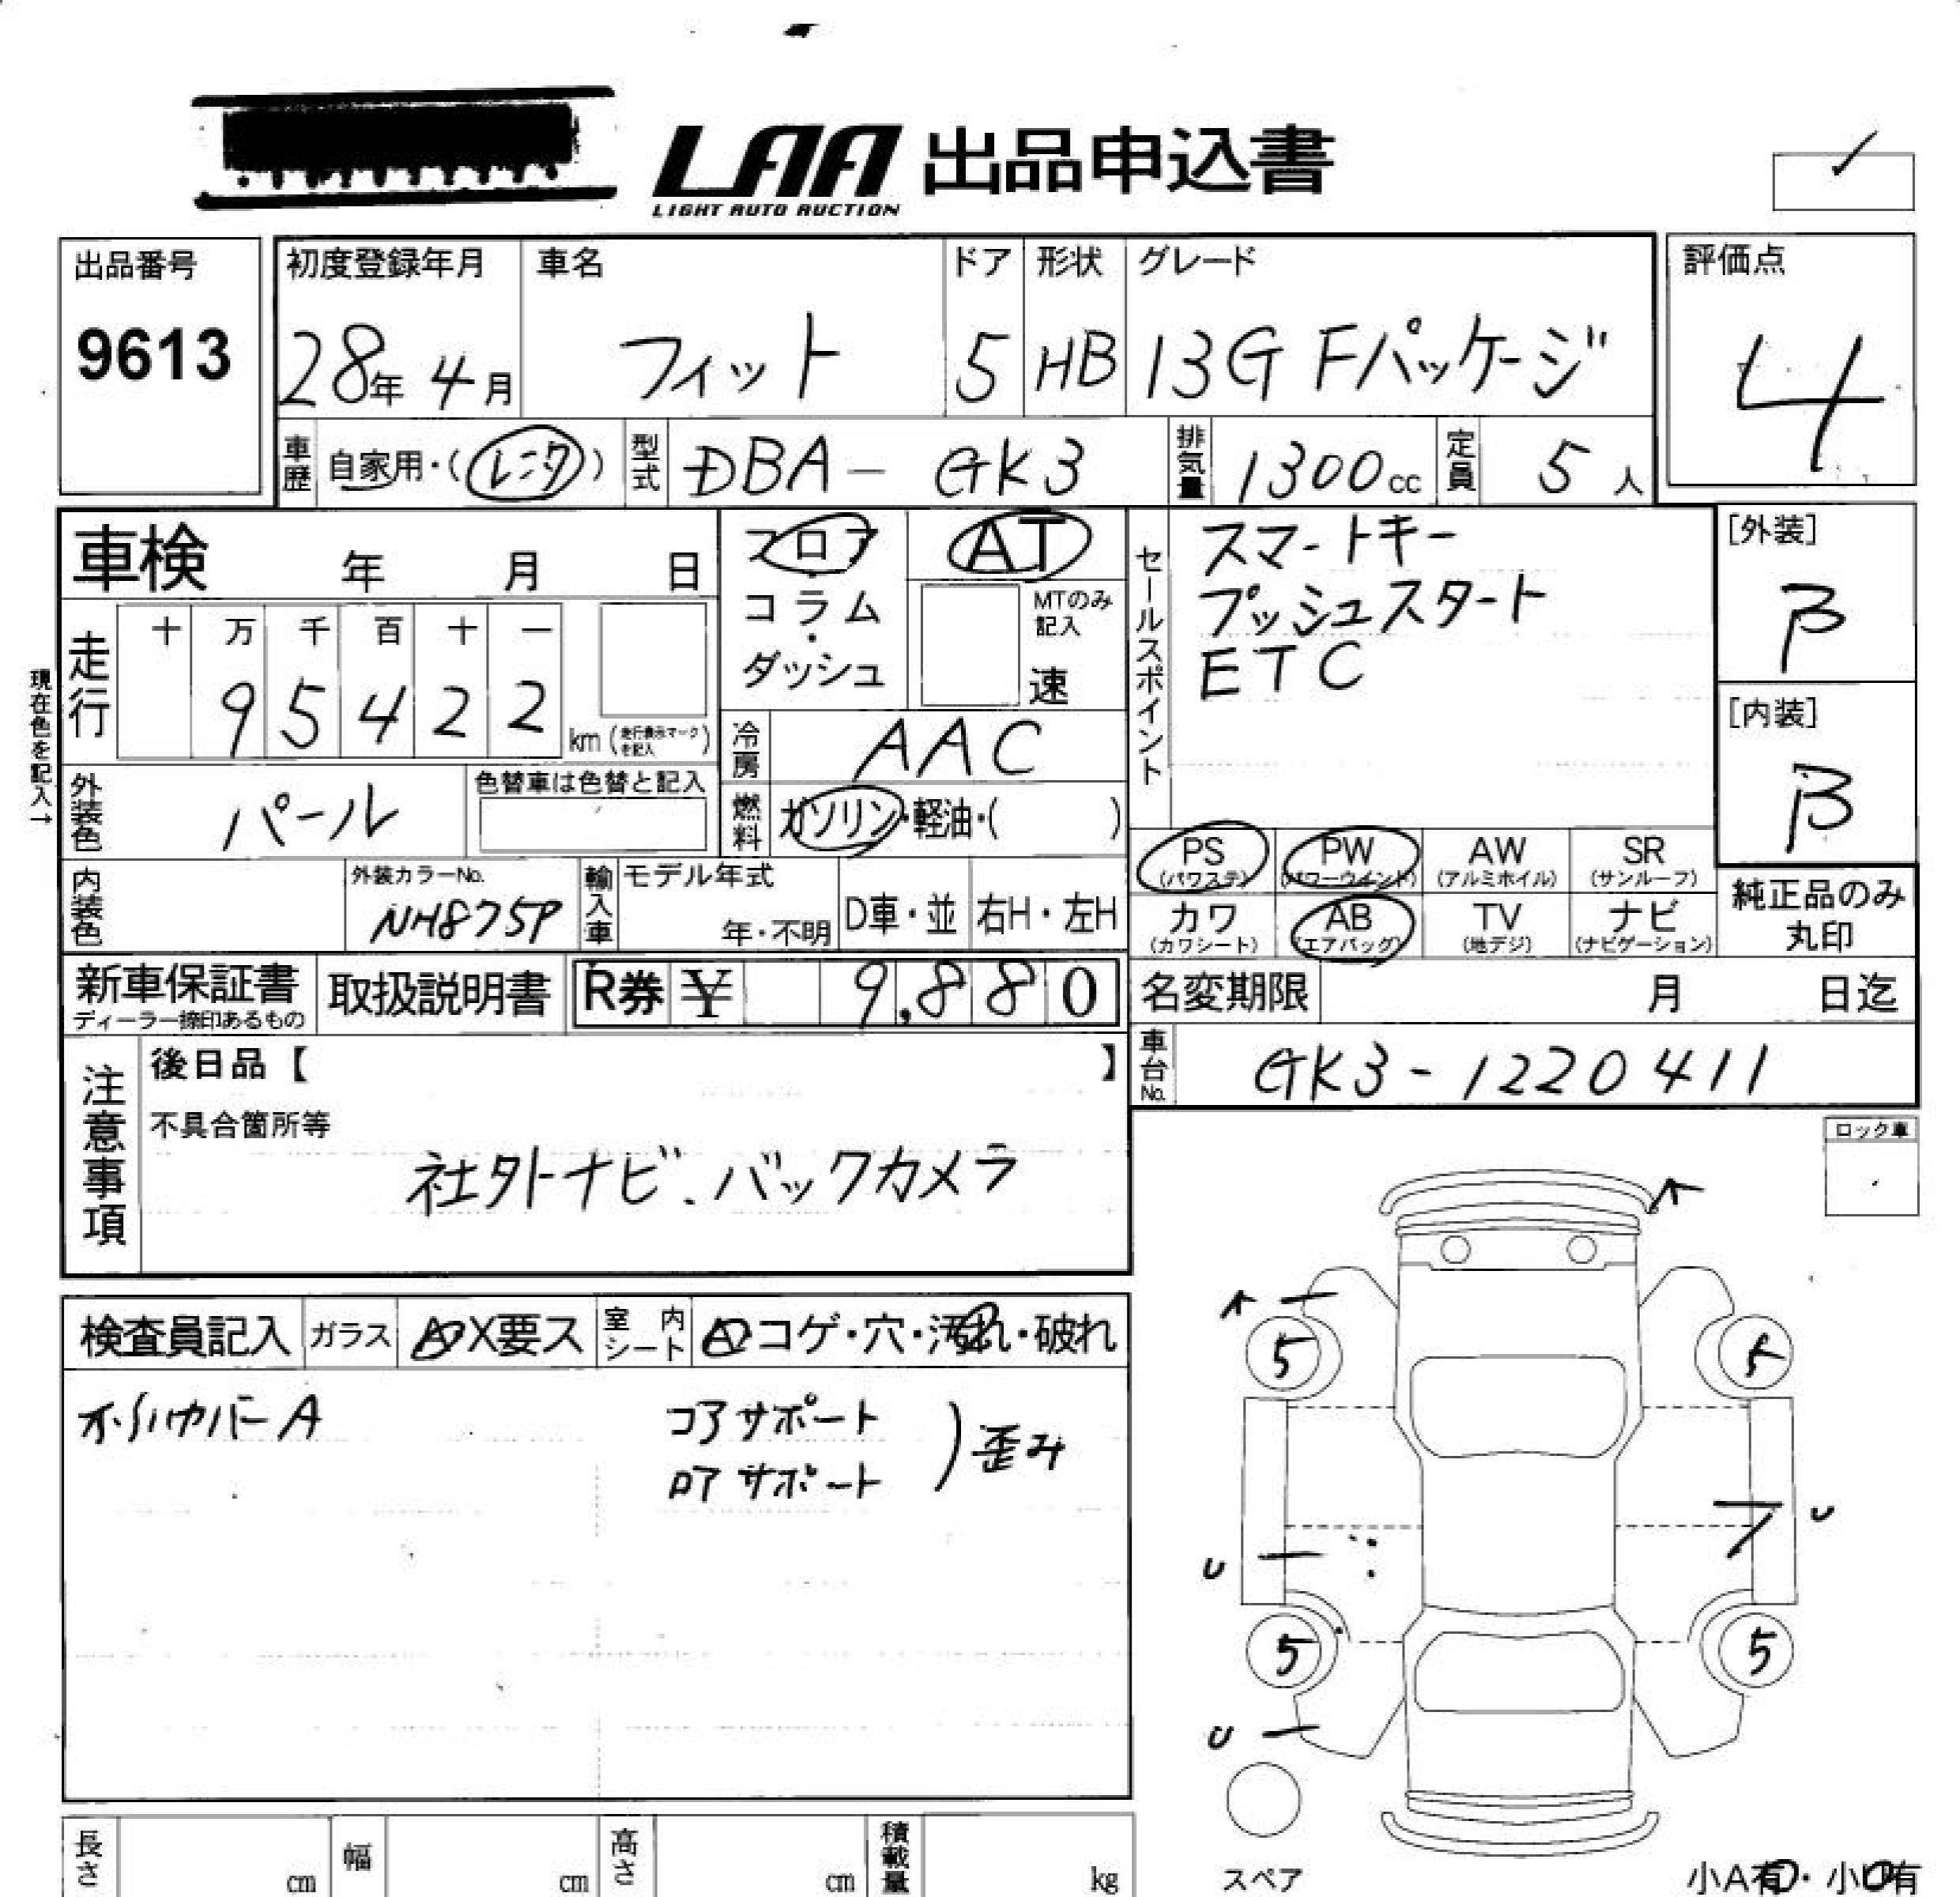 LAA 出品申込書
LIGHT AUTO AUCTION
出品番号
9613
初度登録年月
28年 4月
車名
フィット
ドア
5
形状
HB
グレード
13G Fパッケージ
評価点
4
車歴
自家用・(レンタ)
型式
DBA－GK3
排気量
1300cc
定員
5人
車検 年 月 日
フロア
コラム
・
ダッシュ
AT
MTのみ
記入
速
セールスポイント
スマートキー
プッシュスタート
ETC
[外装]
B
[内装]
B
現在色を記入→
走行
十 万 千 百 十 一
9 5 4 2 2
km (走行表示マークを記入)
冷房
AAC
外装色
パール
色替車は色替と記入
燃料
ガソリン・軽油・( )
PS
(パワステ)
PW
(パワーウインド)
AW
(アルミホイル)
SR
(サンルーフ)
カワ
(カワシート)
AB
(エアバッグ)
TV
(地デジ)
ナビ
(ナビゲーション)
純正品のみ
丸印
内装色
外装カラーNo.
NH875P
輸入車
モデル年式
年・不明
D車・並
右H・左H
新車保証書
ディーラー捺印あるもの
取扱説明書
R券 ¥ 9,880
名変期限 月 日迄
車台No.
GK3-1220411
注意事項
後日品【 】
不具合箇所等
社外ナビ.バックカメラ
ロック車
検査員記入
ガラス
X要ス
室内シート
コゲ・穴・汚れ・破れ
A
コアサポート
ロアサポート
)歪み
5
5
U
U
5
5
U
スペア
小A有・小U有
長さ
cm
幅
cm
高さ
cm
積載量
kg